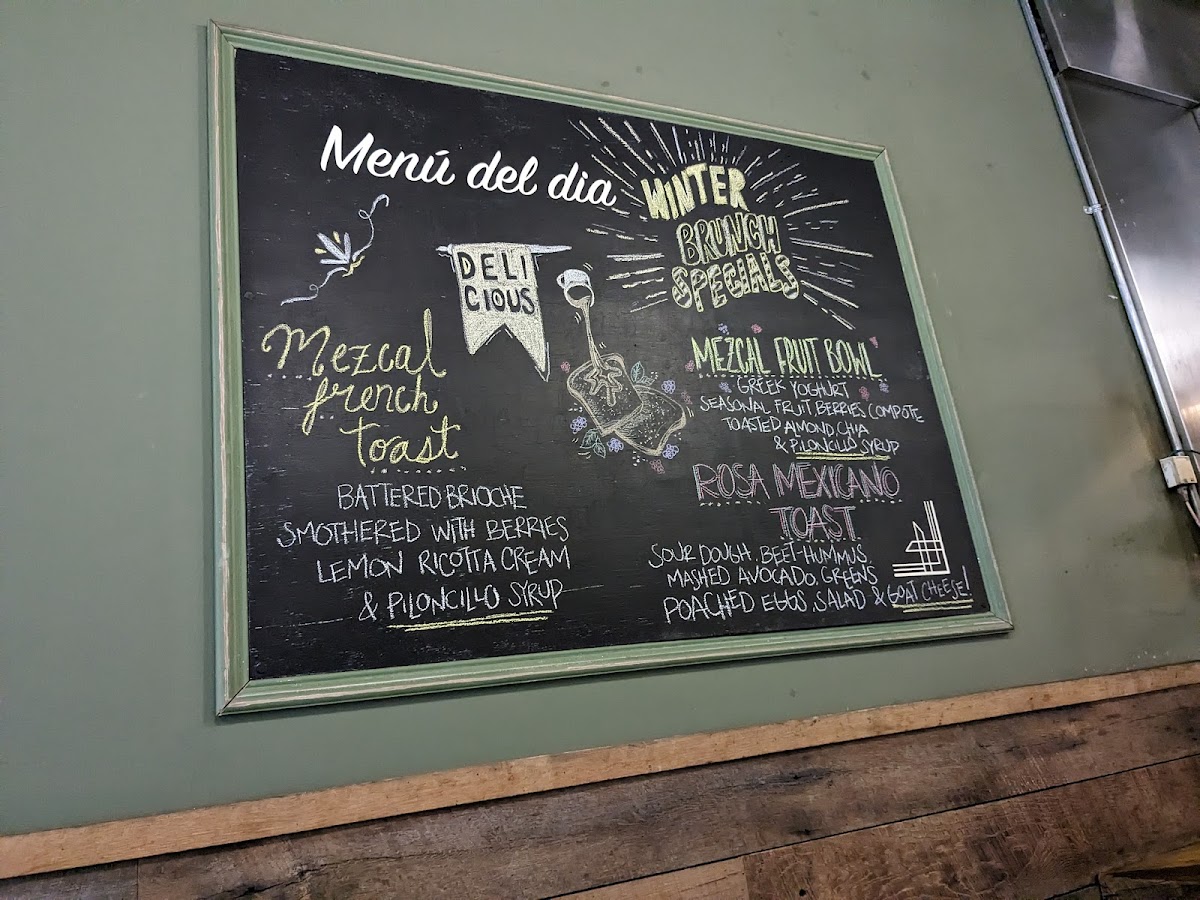 Menú del dia
DELI
CIOUS
Mezcal
french
toast
BATTERED BRIOCHE
SMOTHERED WITH BERRIES
LEMON RICOTTA CREAM
& PILONCILLO SYRUP
WINTER
BRUNCH
SPECIALS
MEZCAL FRUIT BOWL
GREEK YOGHURT
SEASONAL FRUIT, BERRIES COMPOTE
TOASTED ALMOND, CHIA
& PILONCILLO SYRUP
ROSA MEXICANO
TOAST
SOUR DOUGH, BEET-HUMMUS,
MASHED AVOCADO, GREENS
POACHED EGGS, SALAD & GOAT CHEESE!